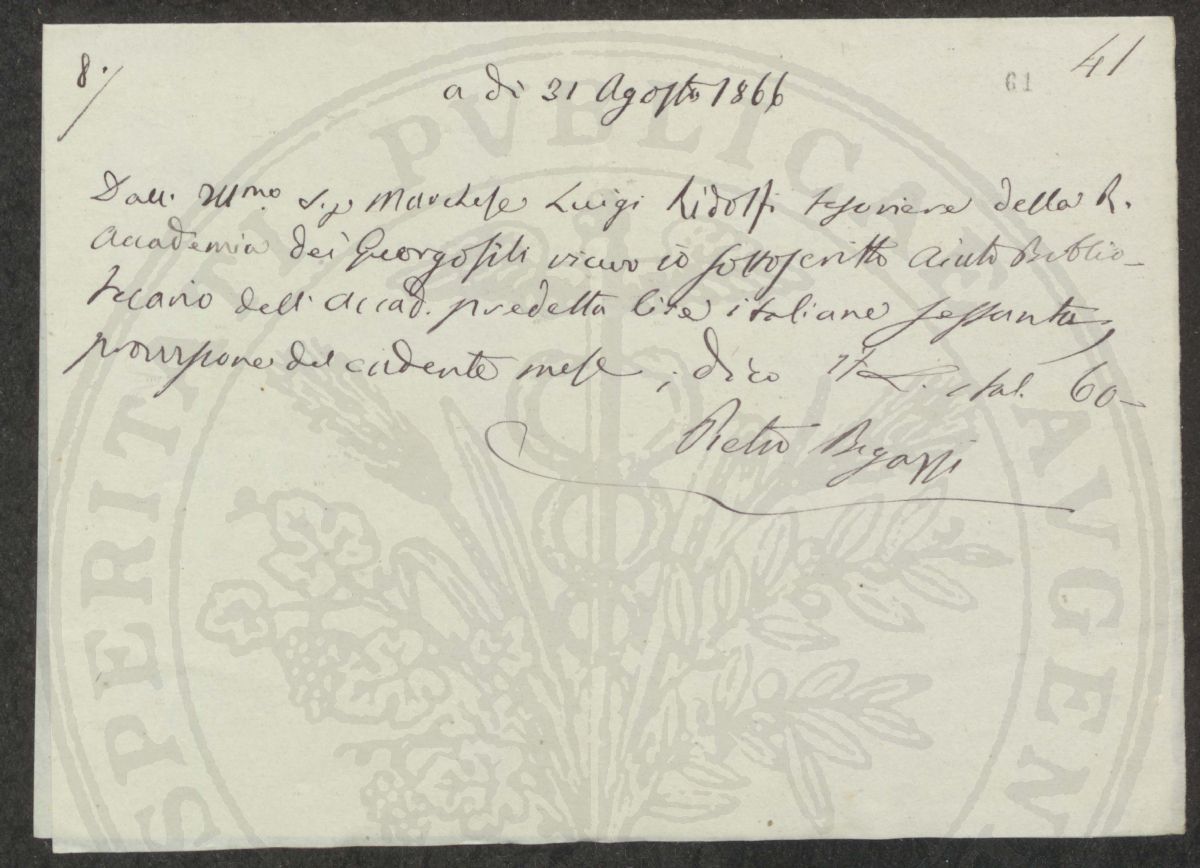 8./
41
61
a dì 31 Agosto 1866
Dall' Illmo. Sig. Marchese Luigi Ridolfi tesoriere della R.
Accademia dei Georgofili ricevo io sottoscritto Aiuto Biblio-
tecario dell' Accad. predetta lire italiane sessanta,
provvisione del cadente mese; dico It L. ital. 60-
Pietro Bigazzi
PROSPERITATI PVBLICAE AVGEN